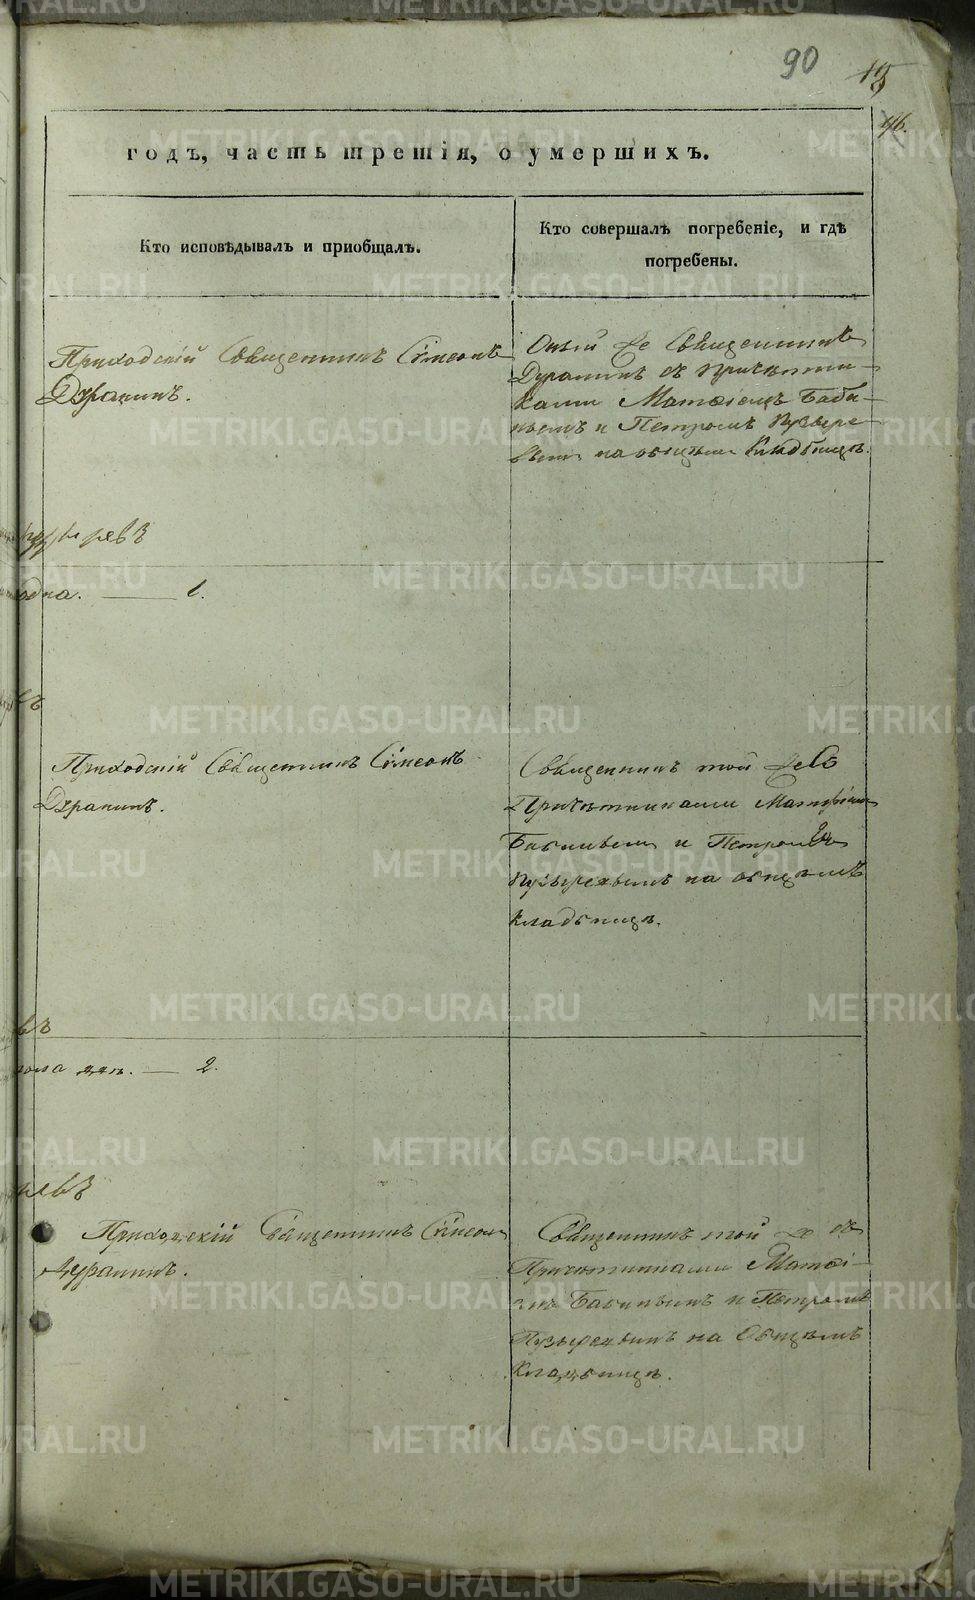 90
96.
годъ, часть третія, о умершихъ.
Кто исповѣдывалъ и приобщалъ.
Кто совершалъ погребеніе, и гдѣ
погребены.
Приходскій Священникъ Сѵмеонъ
Дуранинъ.
Оный же Священникъ
Дуранинъ съ причетни-
ками Матѳіемъ Баби-
нымъ и Петромъ Пузыре-
вымъ на общемъ кладбищѣ.
одна. — 1.
Приходскій Священникъ Сѵмеонъ
Дуранинъ.
Священникъ той же съ
Причетниками Матѳіемъ
Бабинымъ и Петромъ
Пузыревымъ на общемъ
кладбищѣ.
2.
Приходскій Священникъ Сѵмеонъ
Дуранинъ.
Священникъ той же съ
Причетниками Матѳі-
емъ Бабинымъ и Петромъ
Пузыревымъ на Общемъ
кладбищѣ.
METRIKI.GASO-URAL.RU